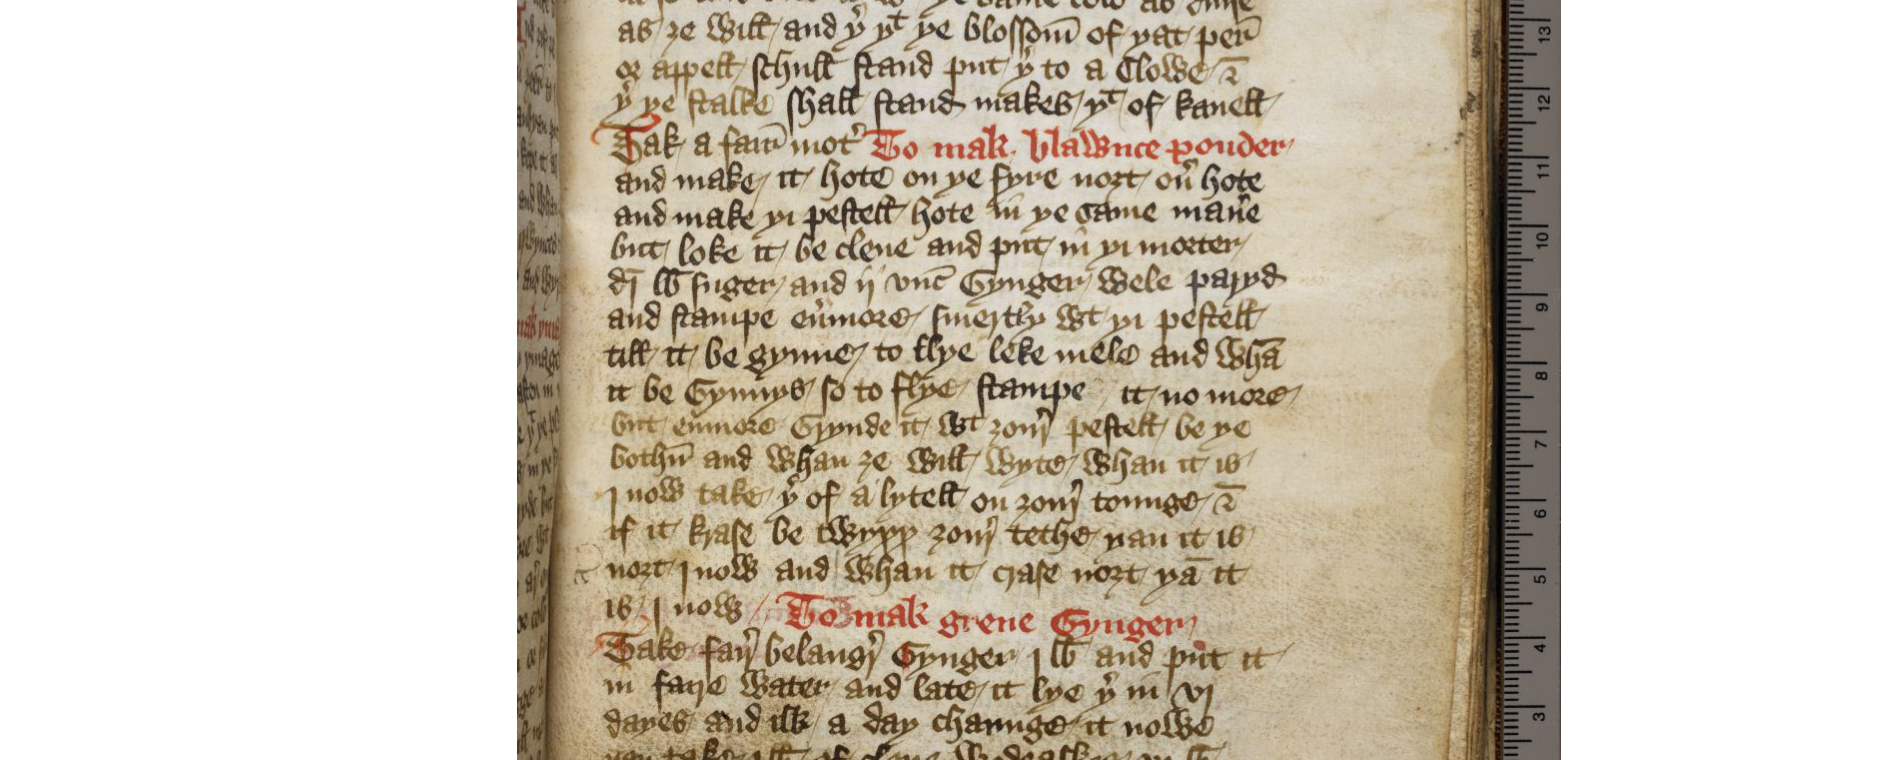 as ze will and yr yt ye blossom̄ of yat per̄
or appell schull stand put yr to a Clowe &
yr ye stalke shall stand makes yt of kanell
Tak a fair mort To mak blawnce pouder
and make it hote on ye fyre nozt ou hote
and make yi pestell hote in ye same man̄e
but loke it be clene and put in yi morter
di lb suger and ij unc Gynger wele paryd
and stampe eumore smertly wt yi pestell
till it be gynne to flye leke mele and whā
it be Gynnys so to flye stampe it no more
but eumore Grynde it wt zour pestell be ye
bothm̄ and whan ze will wyte whan it is
I now take yr of a lytell on zour tounge &
if it krase be twyxx zour tethe yan it is
nozt I now and whan it crase nozt yā it
is I now To mak grene Gynger
Take fayr belangr Gynger j lb and put it
in fayre water and late it lye yr in vj
dayes and ilk a day chaunge it nowe